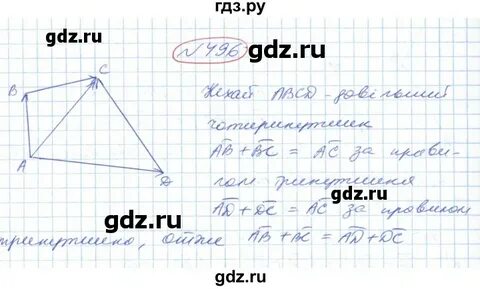 гдз.ру
gdz.ru
№ 496
gdz.ru
C
B
A
D
Нехай ABCD - довільний
gdz.ru
чотирикутник
AB + BC = AC за прави-
лом трикутника
gdz.ru
AD + DC = AC за правилом
gdz.ru
трикутника, отже AB + BC = AD + DC
gdz.ru